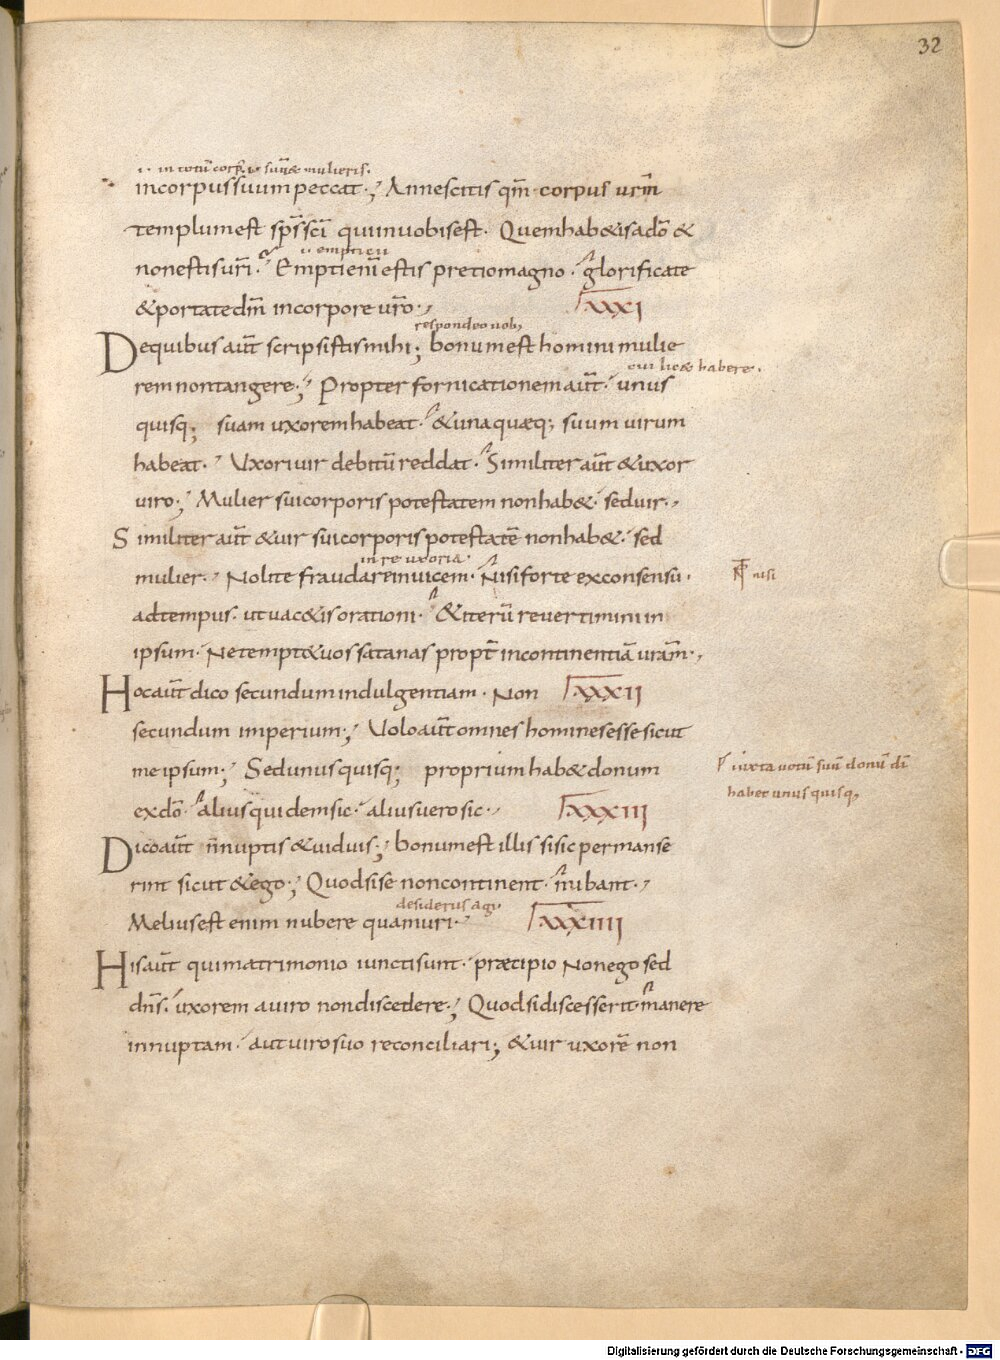 32
.i. in totū corp̄ .i. suū & mulieris.
incorpus suum peccat; Annescitis qm̄ corpus urm̄
templum est sps̄ sc̄i qui inuobis est. Quem hab&is adō &
non estis uri. Empti enī estis pretio magno. glorificate
.i. empticii
& portate dm̄ incorpore urō. LXXXI
respondeo uob;
Dequibus aūt scripsistis mihi; bonum est homini mulie
rem non tangere; Propter fornicationem aūt. unus
cui lic& habere.
quisq; suam uxorem habeat. & una quæq; suum uirum
habeat. Uxori uir debitū reddat. Similiter aūt & uxor
uiro; Mulier sui corporis potestatem non hab&. sed uir.
Similiter aūt & uir sui corporis potestatē non hab&. sed
in re uxoria.
mulier. Nolite fraudare inuicem. Nisi forte ex consensu.
nisi
ad tempus. ut uac&is orationi. & iterū reuertimini in
ipsum. Ne tempt& uos satanas propt̄ incontinentiā urām.
Hoc aūt dico secundum indulgentiam. Non LXXXII
secundum imperium; Uolo aūt omnes homines esse sicut
me ipsum; Sed unus quisq; proprium hab& donum
iuxta uotū suū donū dī
habet unus quisq;
ex dō. alius quidem sic. alius uero sic. LXXXIII
Dico aūt n̄nuptis & uiduis; bonum est illis si sic permanse
rint sicut & ego; Quod si se non continent. nubant.
desideriis agi.
Melius est enim nubere quam uri. LXXXIIII
His aūt qui matrimonio iuncti sunt. præcipio Non ego sed
dn̄s. uxorem a uiro non discedere; Quod si discesserit. manere
innuptam. aut uiro suo reconciliari; & uir uxorē non
Digitalisierung gefördert durch die Deutsche Forschungsgemeinschaft - DFG